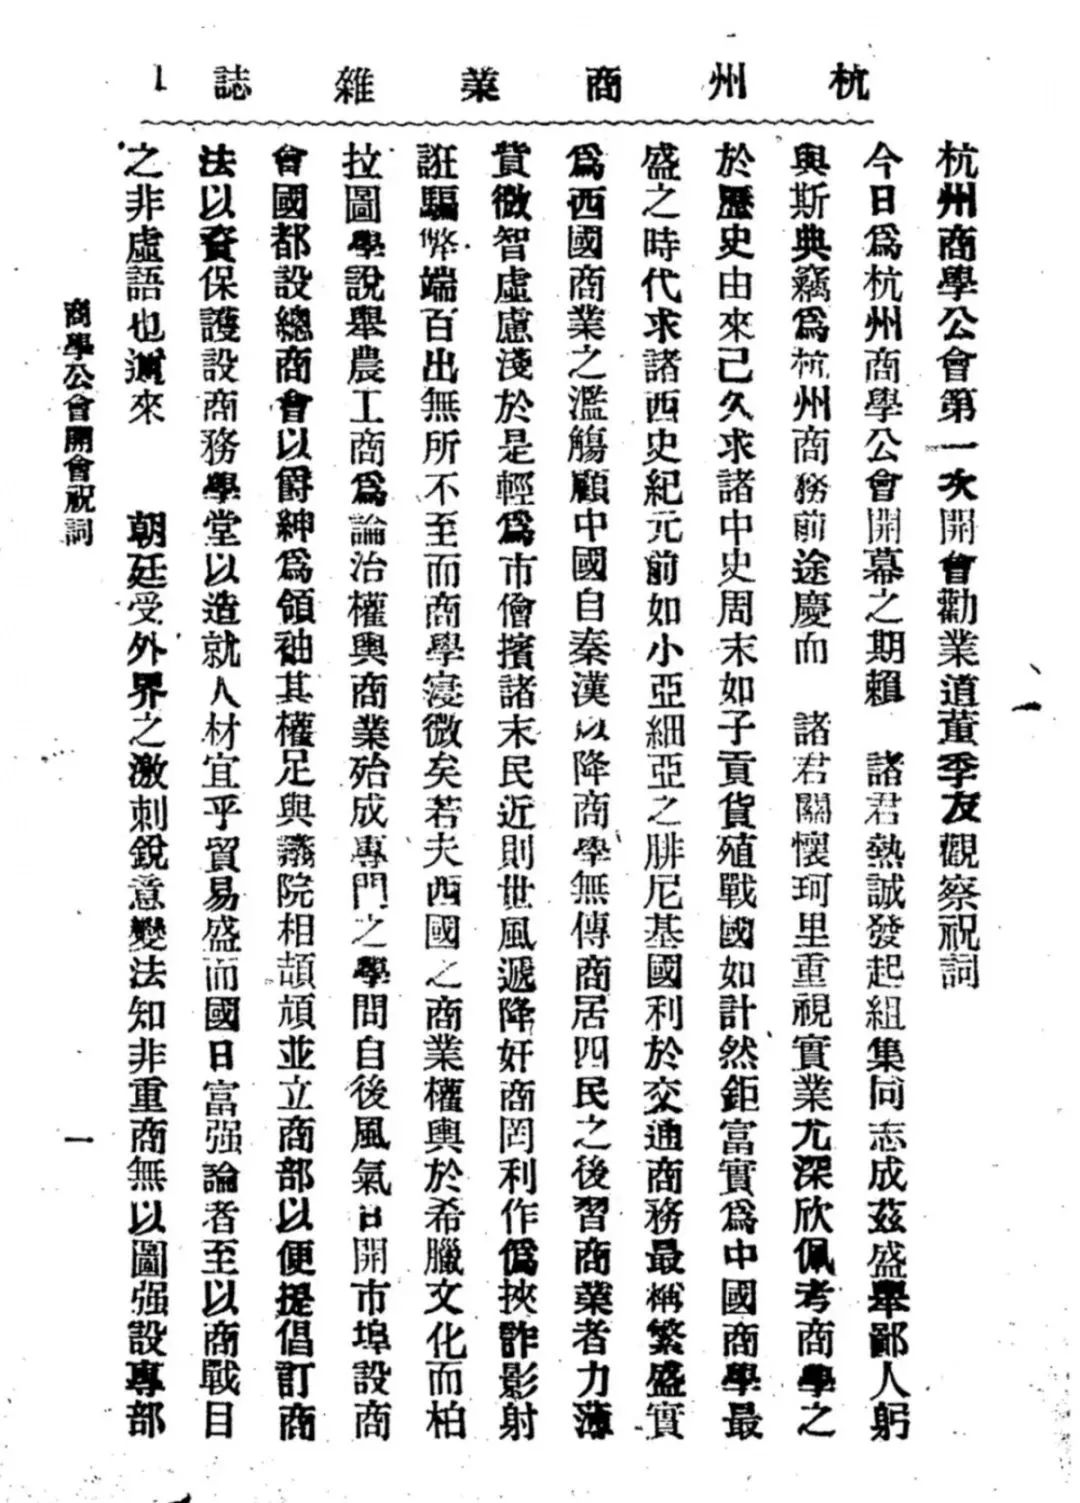 杭州商業雜誌 1
杭州商學公會第一次開會勸業道董季友觀察祝詞
今日爲杭州商學公會開幕之期賴　諸君熱誠發起組集同志成茲盛舉鄙人躬
與斯典竊爲杭州商務前途慶而　諸君關懷珂里重視實業尤深欣佩考商學之
於歷史由來已久求諸中史周末如子貢貨殖戰國如計然鉅富實爲中國商學最
盛之時代求諸西史紀元前如小亞細亞之腓尼基國利於交通商務最稱繁盛實
爲西國商業之濫觴顧中國自秦漢以降商學無傳商居四民之後習商業者力薄
貲微智虛慮淺於是輕爲市儈擯諸末民近則世風遞降奸商罔利作僞挾詐影射
誑騙弊端百出無所不至而商學寖微矣若夫西國之商業權輿於希臘文化而柏
拉圖學說舉農工商爲論治權輿商業殆成專門之學問自後風氣日開市埠設商
會國都設總商會以爵紳爲領袖其權足與議院相頡頏並立商部以便提倡訂商
法以資保護設商務學堂以造就人材宜乎貿易盛而國日富强論者至以商戰目
之非虛語也邇來　朝廷受外界之激刺銳意變法知非重商無以圖强設專部
商學公會開會祝詞
一